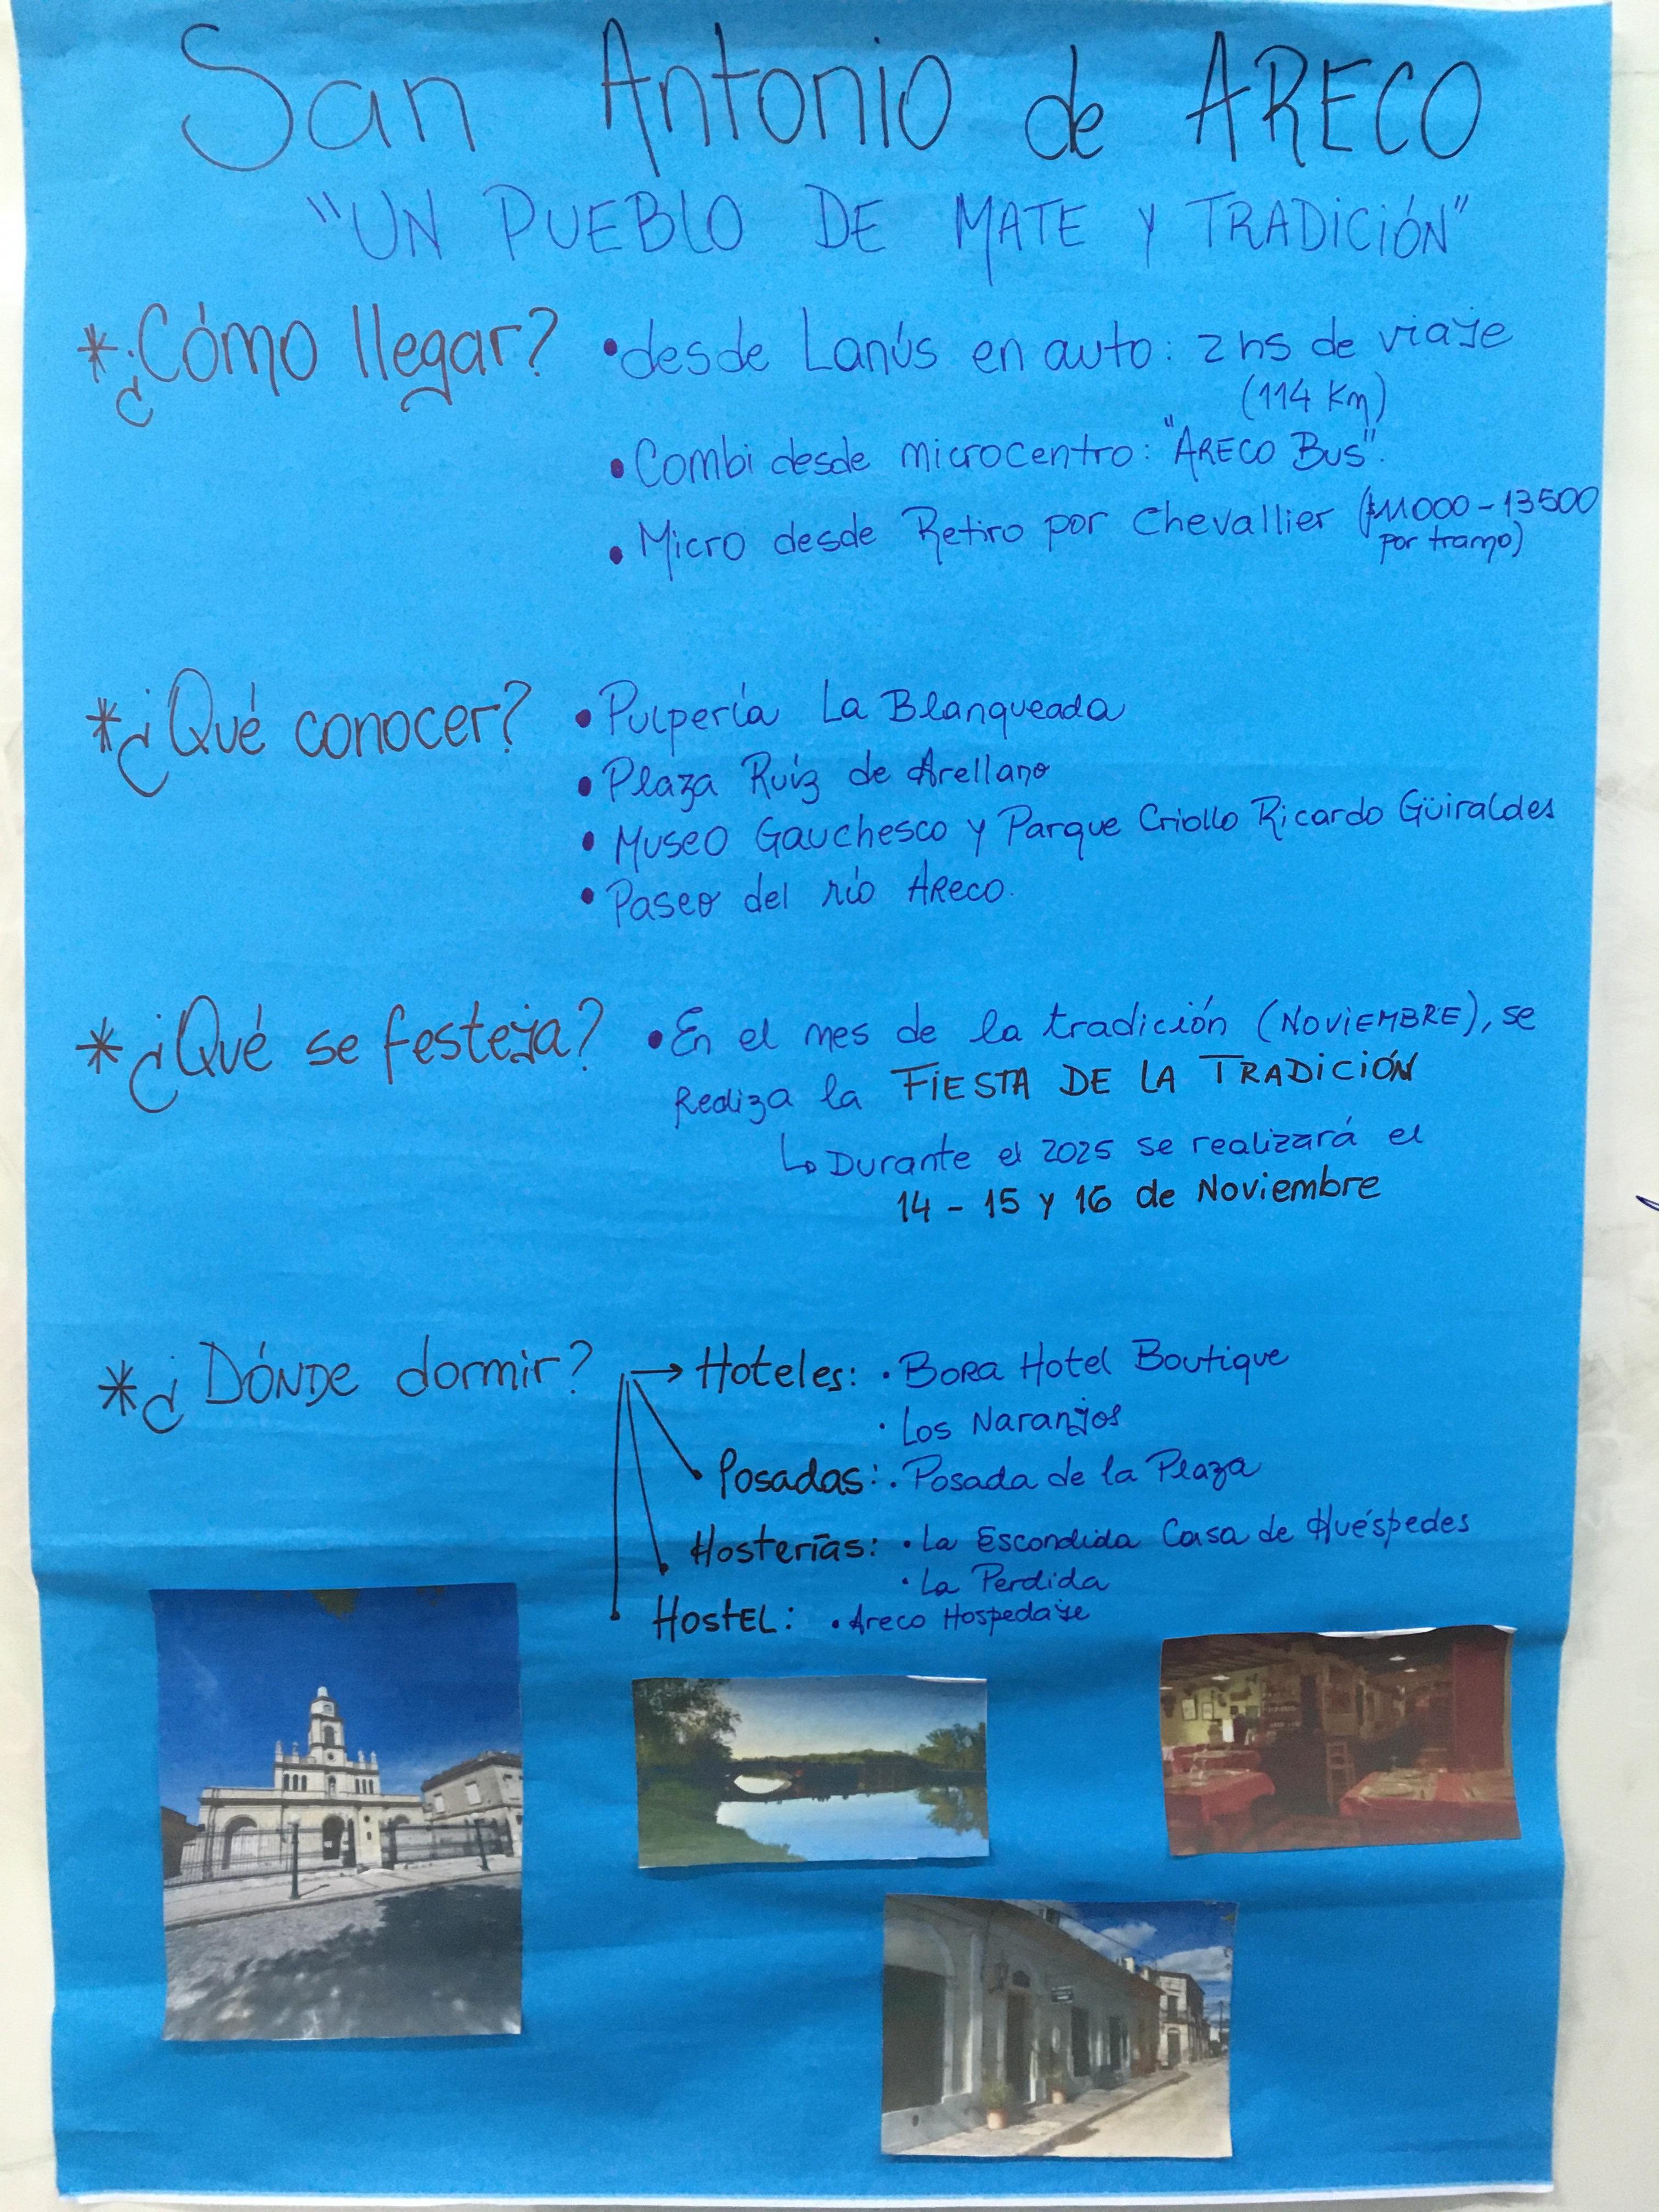 San Antonio de ARECO
"UN PUEBLO DE MATE Y TRADICIÓN"
*¿Cómo llegar? • desde Lanús en auto: 2 hs de viaje
(114 Km)
• Combi desde microcentro: "ARECO BUS".
• Micro desde Retiro por Chevallier ($11000 - 13500
por tramo)
*¿Qué conocer? • Pulpería La Blanqueada
• Plaza Ruíz de Arellano
• Museo Gauchesco y Parque Criollo Ricardo Güiraldes
• Paseo del río Areco.
*¿Qué se festeja? • En el mes de la tradición (NOVIEMBRE), se
Realiza la FIESTA DE LA TRADICIÓN
↳ Durante el 2025 se realizará el
14 - 15 y 16 de Noviembre
*¿DÓNDE dormir? → Hoteles: • BORA Hotel Boutique
• Los Naranjos
Posadas: • Posada de la Plaza
Hosterías: • La Escondida Casa de Huéspedes
• La Perdida
HostEL: • Areco Hospedaje